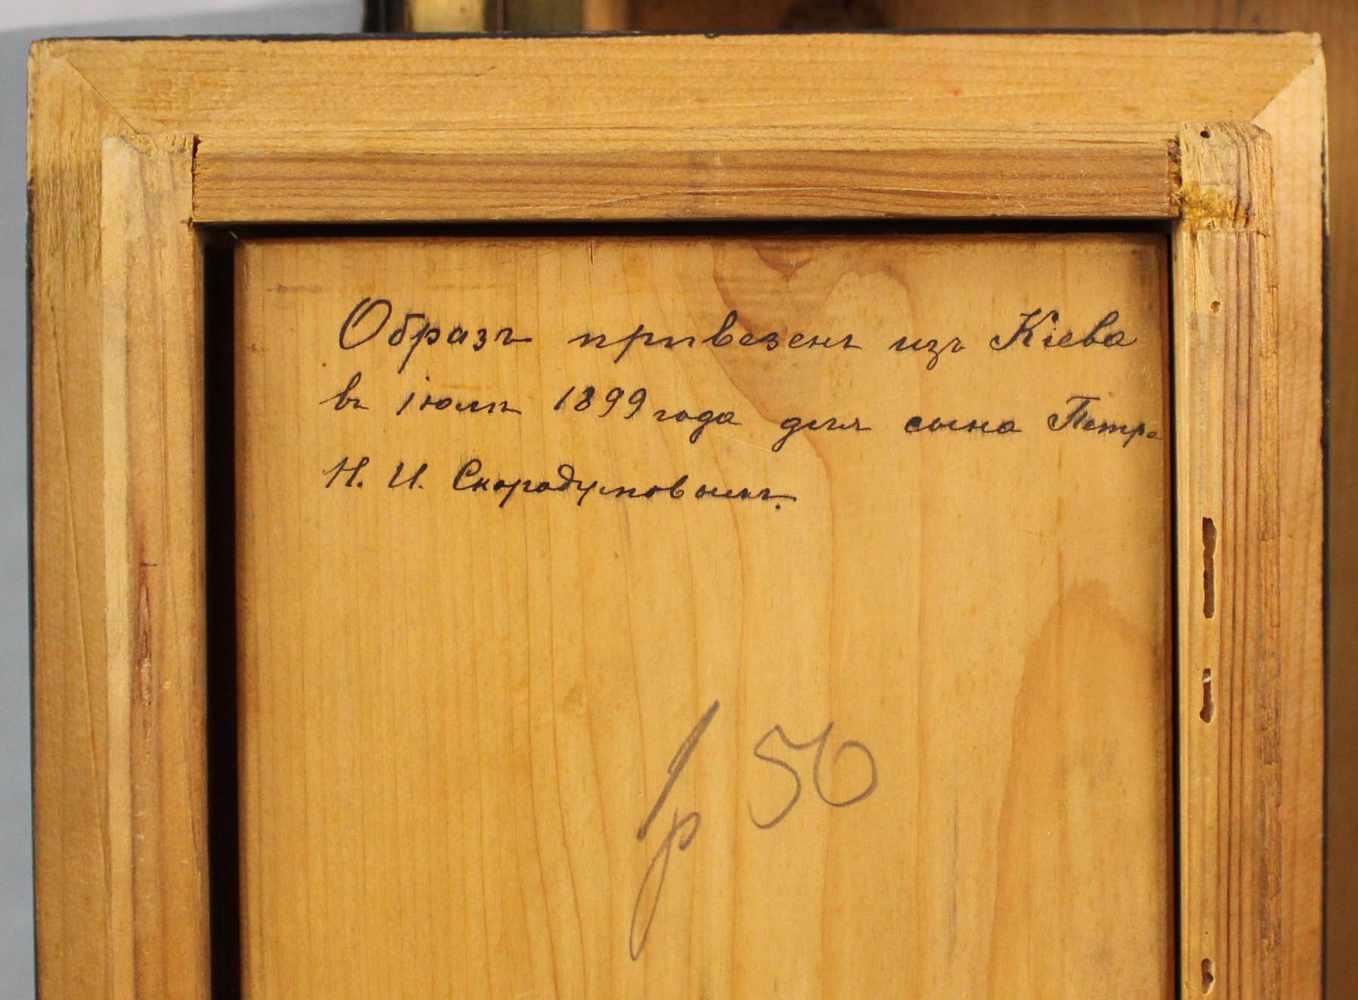 Образъ привезенъ изъ Кіева
въ іюлѣ 1899 года для сына Петра
Н. И. Скородумовымъ.
р 50